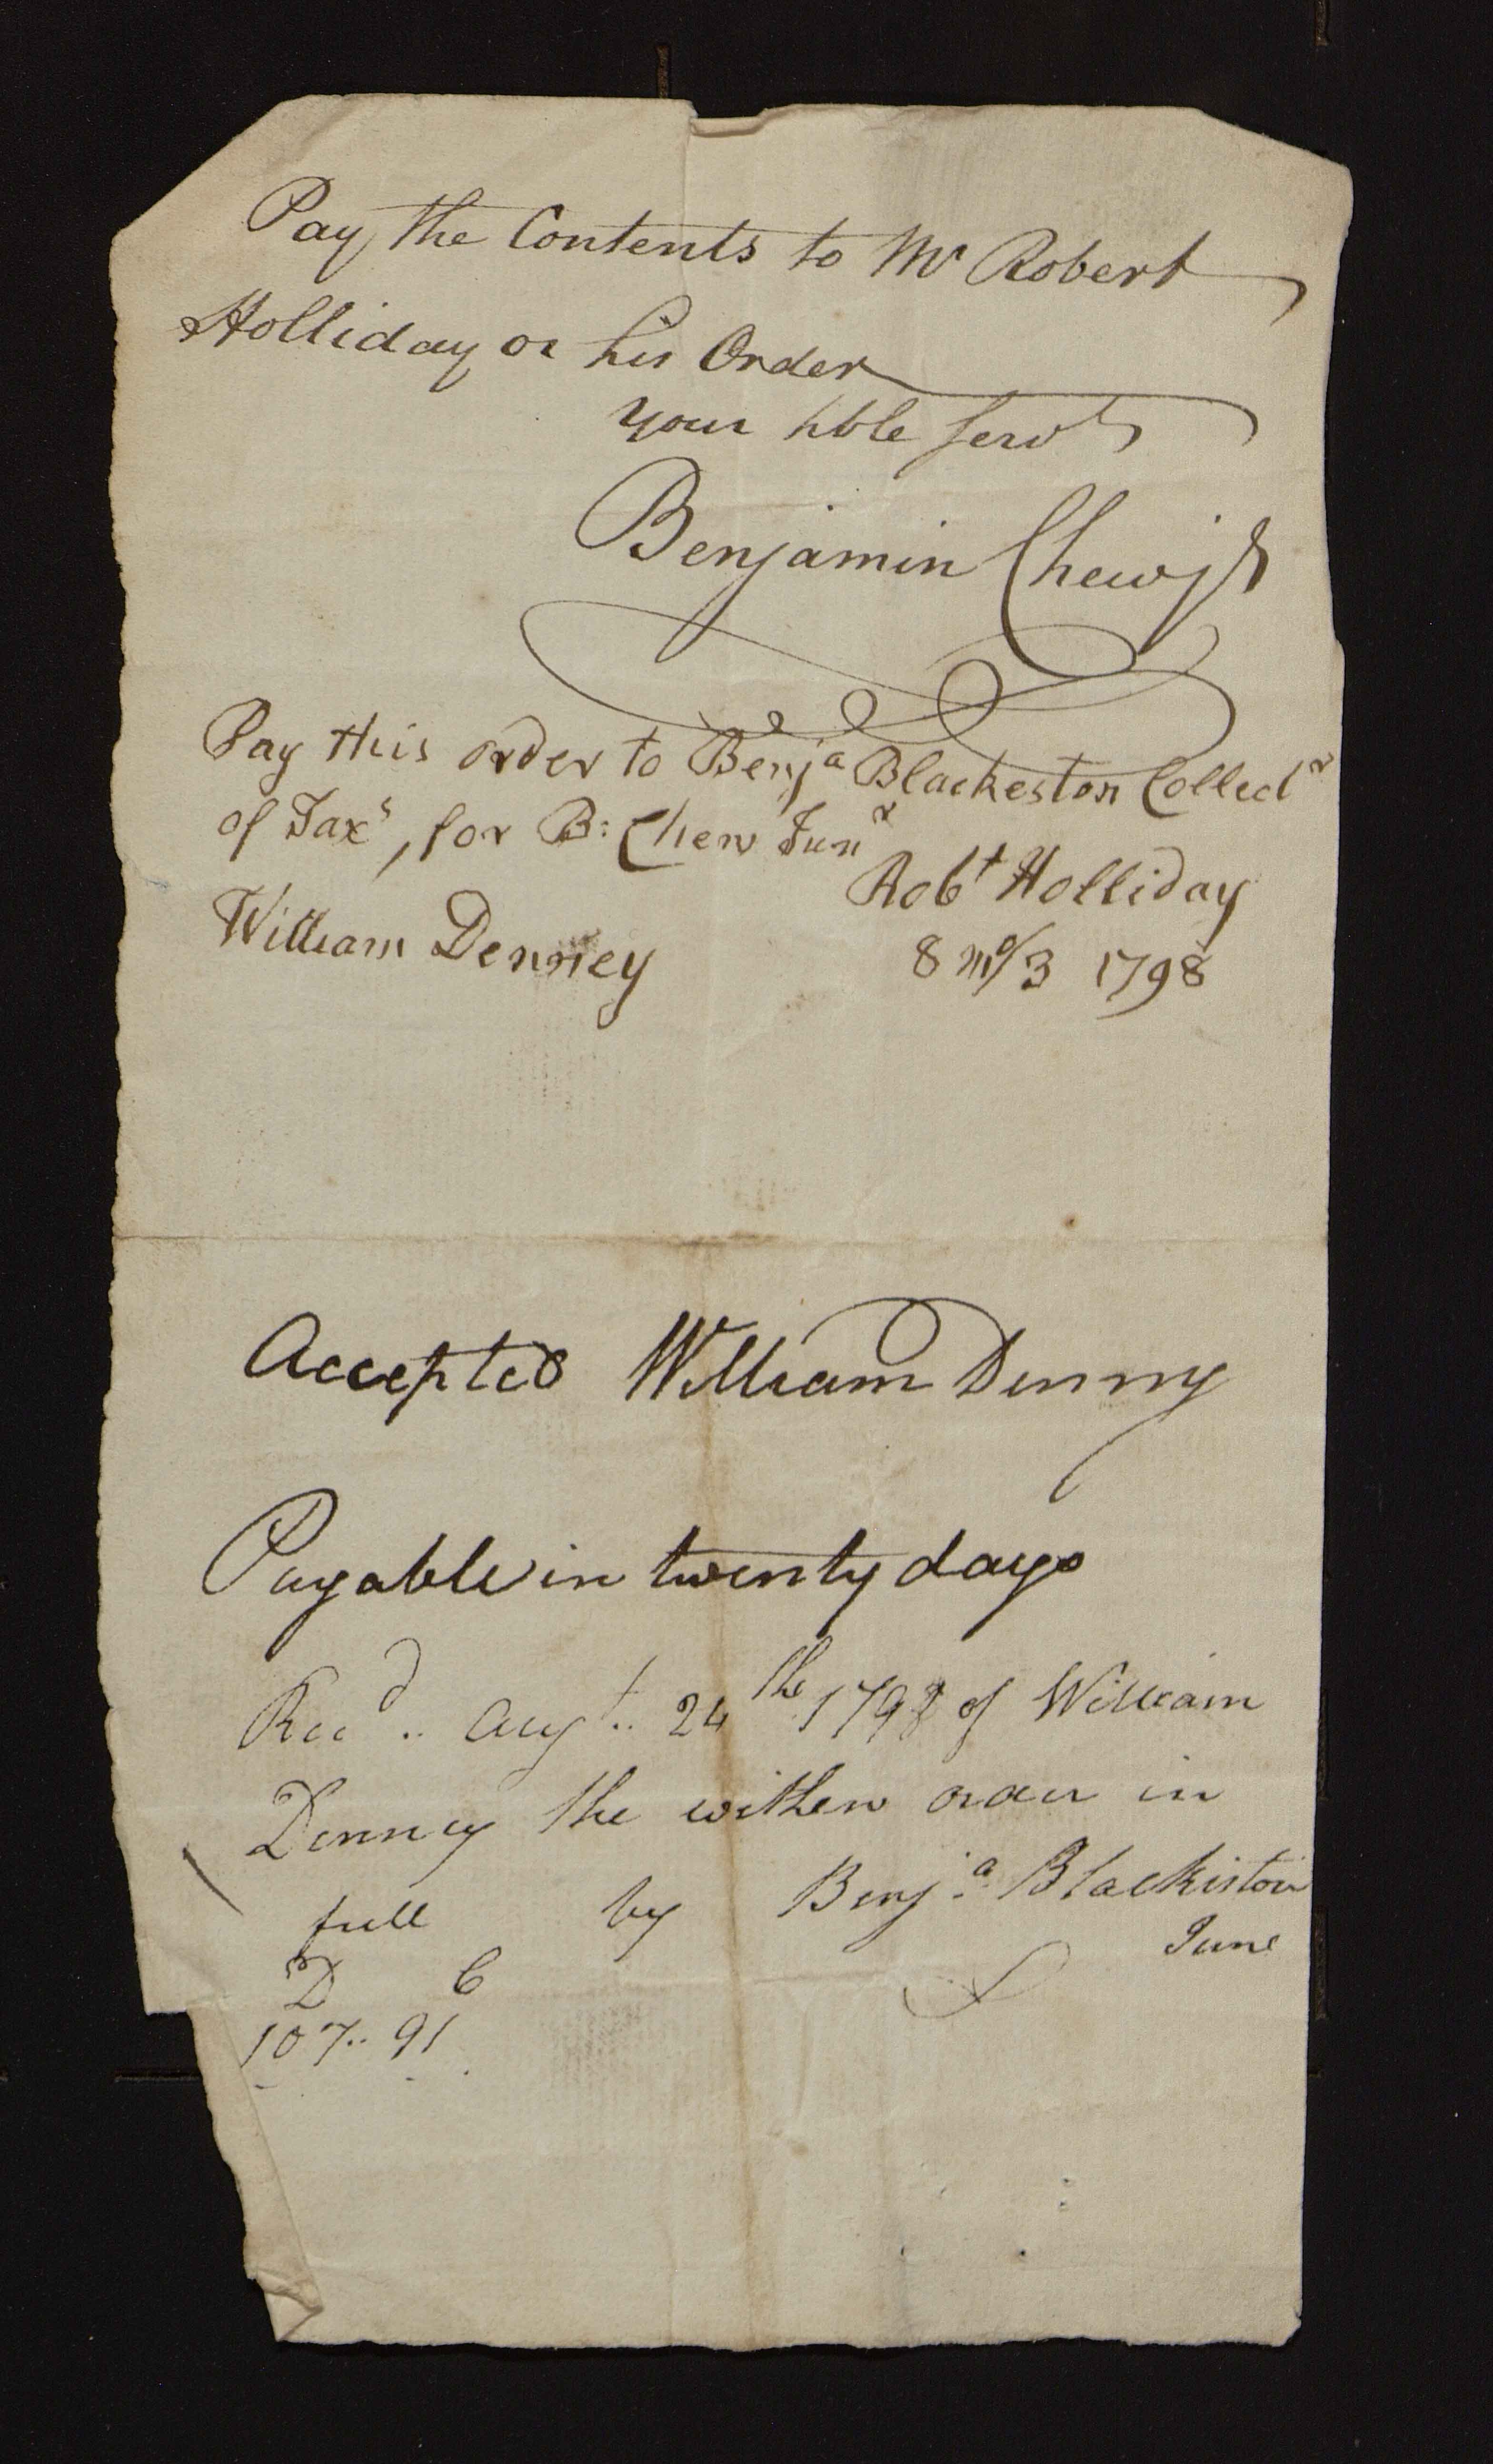 Pay the Contents to Mr Robert
Holliday or his Order
your hble servt
Benjamin Chew jr
Pay this order to Benja Blackeston Collectr
of Taxs, for B: Chew Junr
Robt Holliday
William Denney
8 mo/3 1798
Accepted William Denny
Payable in twenty days
Recd .. Augt .. 24th 1798 of William
Denney the within order in
full by Benja Blackiston
June
D C
107 .. 91